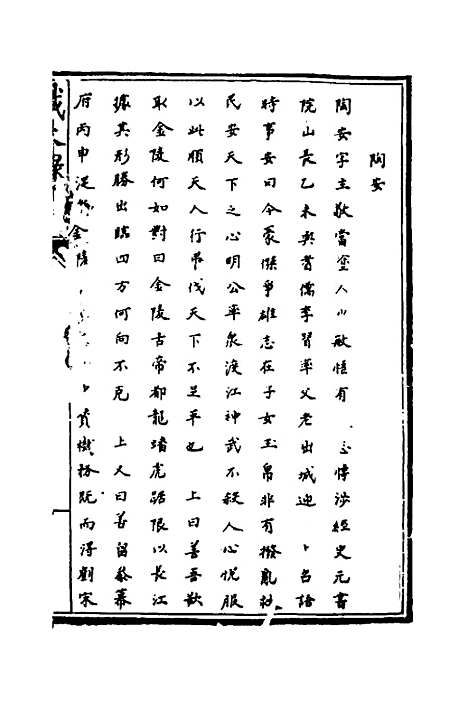 陶安
陶安字主敬當塗人少敏悟有志博涉經史元書
院山長乙未與耆儒李習率父老出城迎上召語
時事安曰今豪傑爭雄志在子女玉帛非有撥亂救
民安天下之心明公率衆渡江神武不殺人心悅服
以此順天人行吊伐天下不足平也 上曰善吾欲
取金陵何如對曰金陵古帝都龍蟠虎踞限以長江
據其形勝出臨四方何向不克 上又曰善留叅幕
府丙申從 金陵 上 資機務既而得劉宋